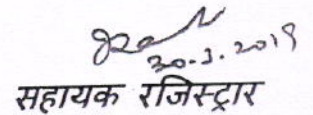 30.1.2019
सहायक रजिस्ट्रार